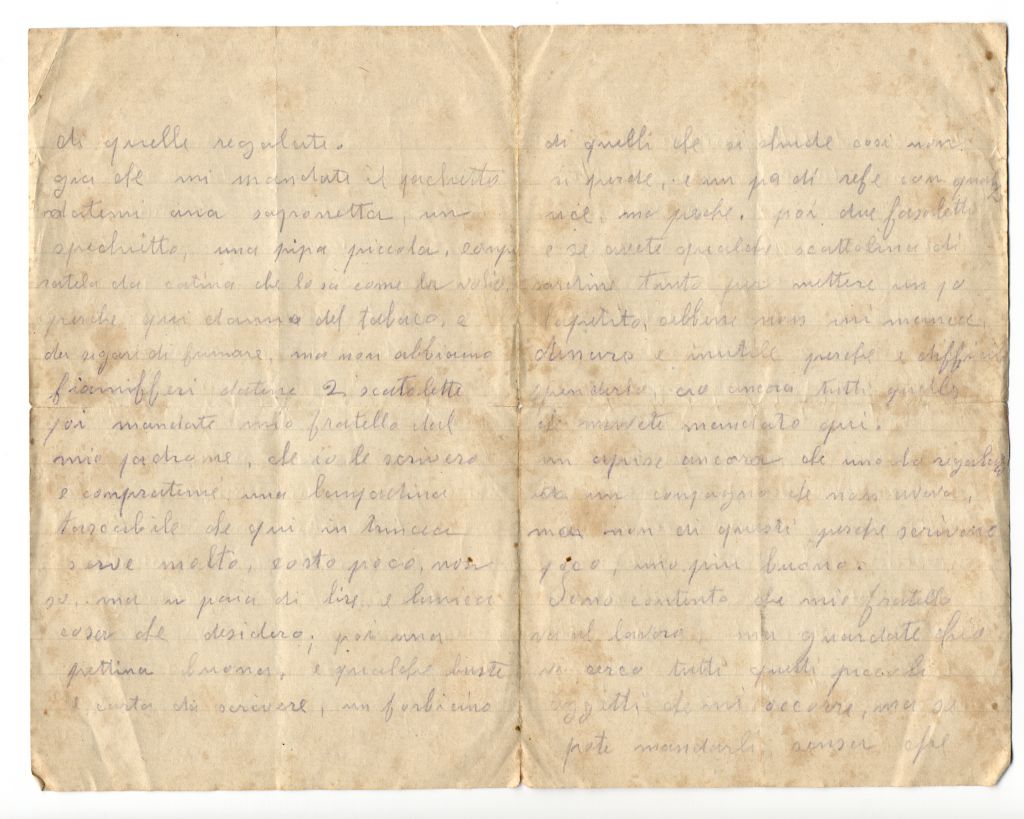 di quelle regalate.
gia che mi mandate il pachetto
datemi una saponetta, un
spechietto, una pipa piccola, compe
ratela da catina che lo sa come la volio,
perche qui danno del tabaco, e
da sigari di fumare, ma non abbiamo
fiamifferi datene 2 scatolette
poi mandate mio fratello dal
mio padrone, che io le scrivero
e compratemi una lampadina
tascabile che qui in trincea
serve molto, costo poco, non
so, ma u paia di lire, e lunica
cosa che desidero; poi una
pettina buona, e qualche buste
e carta da scrivere, un forbicino
di quelli che si chiude cosi non
si perde, e un pa di refe con qual
uce, ma poche. poi due fasoletti
e se avete qualche scattolina di
sardine tanto per mettere un po
lapetito, ebbene non mi manca,
dinaro e inutile perche e difficile
spenderlo, cio ancora tutti quello
che mavete mandato qui.
un apise ancora che uno lo regalo
a un conpagno che non aveva,
ma non di questi perche scrivono
poco, uno piu buono.
Sono contento che mio fratello
va al lavoro, ma guardate che io
vi cerco tutti quelli piccoli
oggetti che mi occorre, ma se
pote mandarli, sensa che